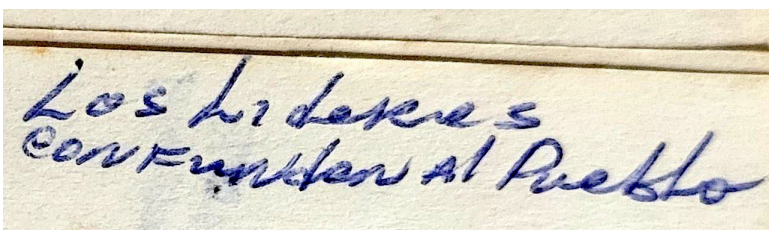 Los Lideres
confunden Al Pueblo